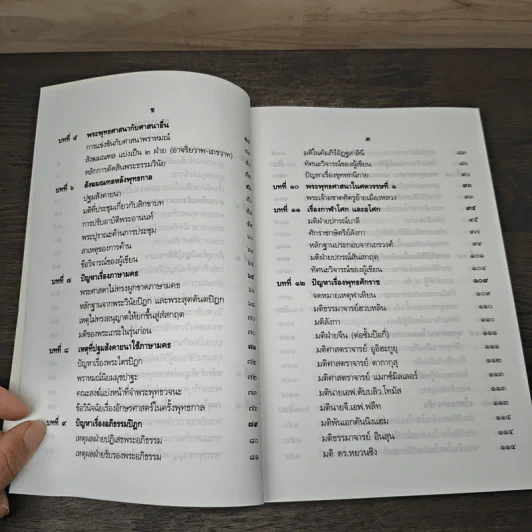 ข
บทที่ ๕ พระพุทธศาสนากับศาสนาอื่น
การแข่งขันกับศาสนาพราหมณ์
สังฆมณฑล แบ่งเป็น ๒ ฝ่าย (อาจริยวาท-เถรวาท)
หลักการตัดสินพระธรรมวินัย
บทที่ ๖ สังฆมณฑลหลังพุทธกาล
ปฐมสังคายนา
มติที่ประชุมเกี่ยวกับสิกขาบท
การปรับอาบัติพระอานนท์
พระปุราณะด้านการประชุม
สาเหตุของการค้าน
ข้อวิจารณ์ของผู้เขียน
บทที่ ๗ ปัญหาเรื่องภาษามคธ ๖๕
พระศาสดาไม่ทรงผูกขาดภาษามคธ
หลักฐานจากพระวินัยปิฎก และพระสุตตันตปิฎก
เหตุไม่ทรงอนุญาตให้ยกขึ้นสู่สันสกฤต ๗๐
มติของพระเถระในรุ่นก่อน ๗๐
บทที่ ๘ เหตุที่ปฐมสังคายนาใช้ภาษามคธ ๗๑
ปัญหาเรื่องพระไตรปิฎก ๗๒
พราหมณ์นิยมมุขปาฐะ
คณะสงฆ์แบ่งหน้าที่จำพระพุทธวจนะ
ข้อวินิจฉัยเรื่องอักษรศาสตร์ในครั้งพุทธกาล
บทที่ ๙ ปัญหาเรื่องอภิธรรมปิฎก ๗๙
เหตุผลฝ่ายปฏิเสธพระอภิธรรม ๘๐
เหตุผลฝ่ายรับรองพระอภิธรรม ๘๑
ค
มติในคัมภีร์อัฏฐสาลินี
ทัศนะวิจารณ์ของผู้เขียน
ปัญหาเรื่องขุททกนิกาย
บทที่ ๑๐ พระพุทธศาสนาในศตวรรษที่ ๑ ๙๓
พระเจ้าอชาตศัตรูย้ายเมืองหลวง ๙๓
บทที่ ๑๑ เรื่องกาฬาโศก และอโศก ๙๕
มติฝ่ายปกรณ์บาลี ๙๕
ศักราชกษัตริย์ลังกา ๙๗
หลักฐานประกอบจากเถรวงศ์ ๙๙
มติฝ่ายปกรณ์สันสกฤต ๑๐๒
ทัศนะวิจารณ์ของผู้เขียน ๑๐๔
บทที่ ๑๒ ปัญหาเรื่องพุทธศักราช ๑๐๙
จดหมายเหตุฟาเหียน ๑๐๙
มติธรรมาจารย์ฮวบหลิน
มติลังกา
มติฝ่ายจีน (ต่อชั้มปิอกี่)
มติศาสตราจารย์ อูอิฮะกุยุ
มติศาสตราจารย์ ตากากุสุ
มติศาสตราจารย์ แมกซ์มิลเลอร์
มตินายเอฟ.ดับบลิว.โทมัส
มตินายเจ.เอฟ.ฟลีท
มติพันเอกคันนิงแฮม
มติธรรมาจารย์ อินสุน ๑๑๔
มติ ดร.หยวนซิง ๑๑๔